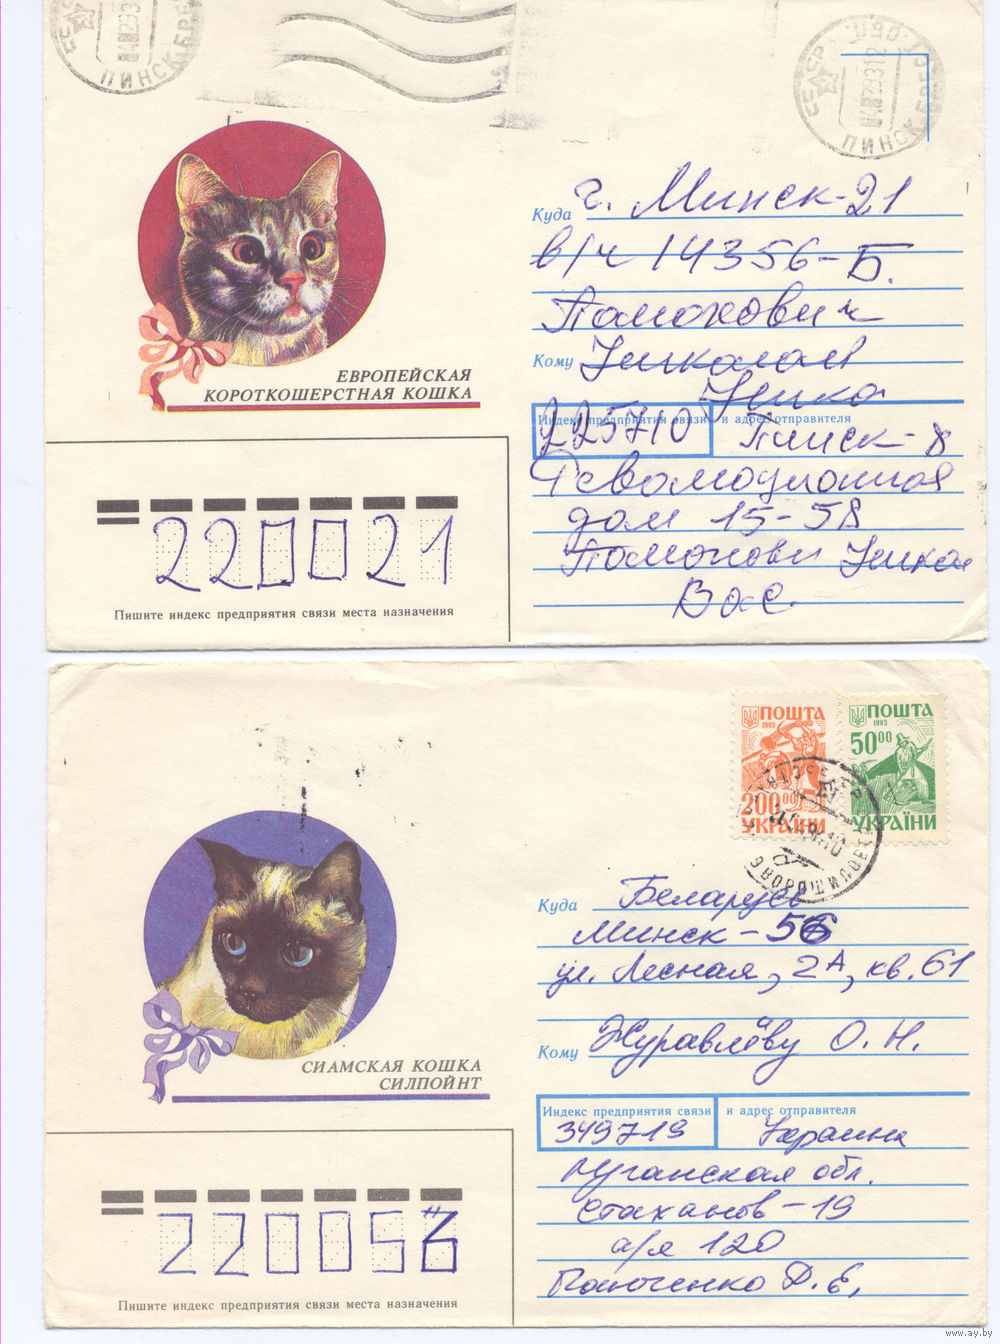 ПИНСК БРЕС
СССР
ПИНСК БРЕС
ЕВРОПЕЙСКАЯ
КОРОТКОШЕРСТНАЯ КОШКА
Куда г. Минск-21
в/ч 14356-Б.
Кому
Индекс предприятия связи и адрес отправителя
225710 Пинск-8
Революционная
дом 15-58
Вас
220021
Пишите индекс предприятия связи места назначения
ПОШТА
1993
200.00
УКРАЇНИ
ПОШТА
1993
50.00
УКРАЇНИ
СИАМСКАЯ КОШКА
СИЛПОЙНТ
Куда Беларусь
Минск-56
ул. Лесная, 2А, кв. 61
Кому Журавлёву О. Н.
Индекс предприятия связи и адрес отправителя
349719 Украина
Луганская обл.
Стаханов-19
а/я 120
Д. Е.
220056
Пишите индекс предприятия связи места назначения
www.ay.by